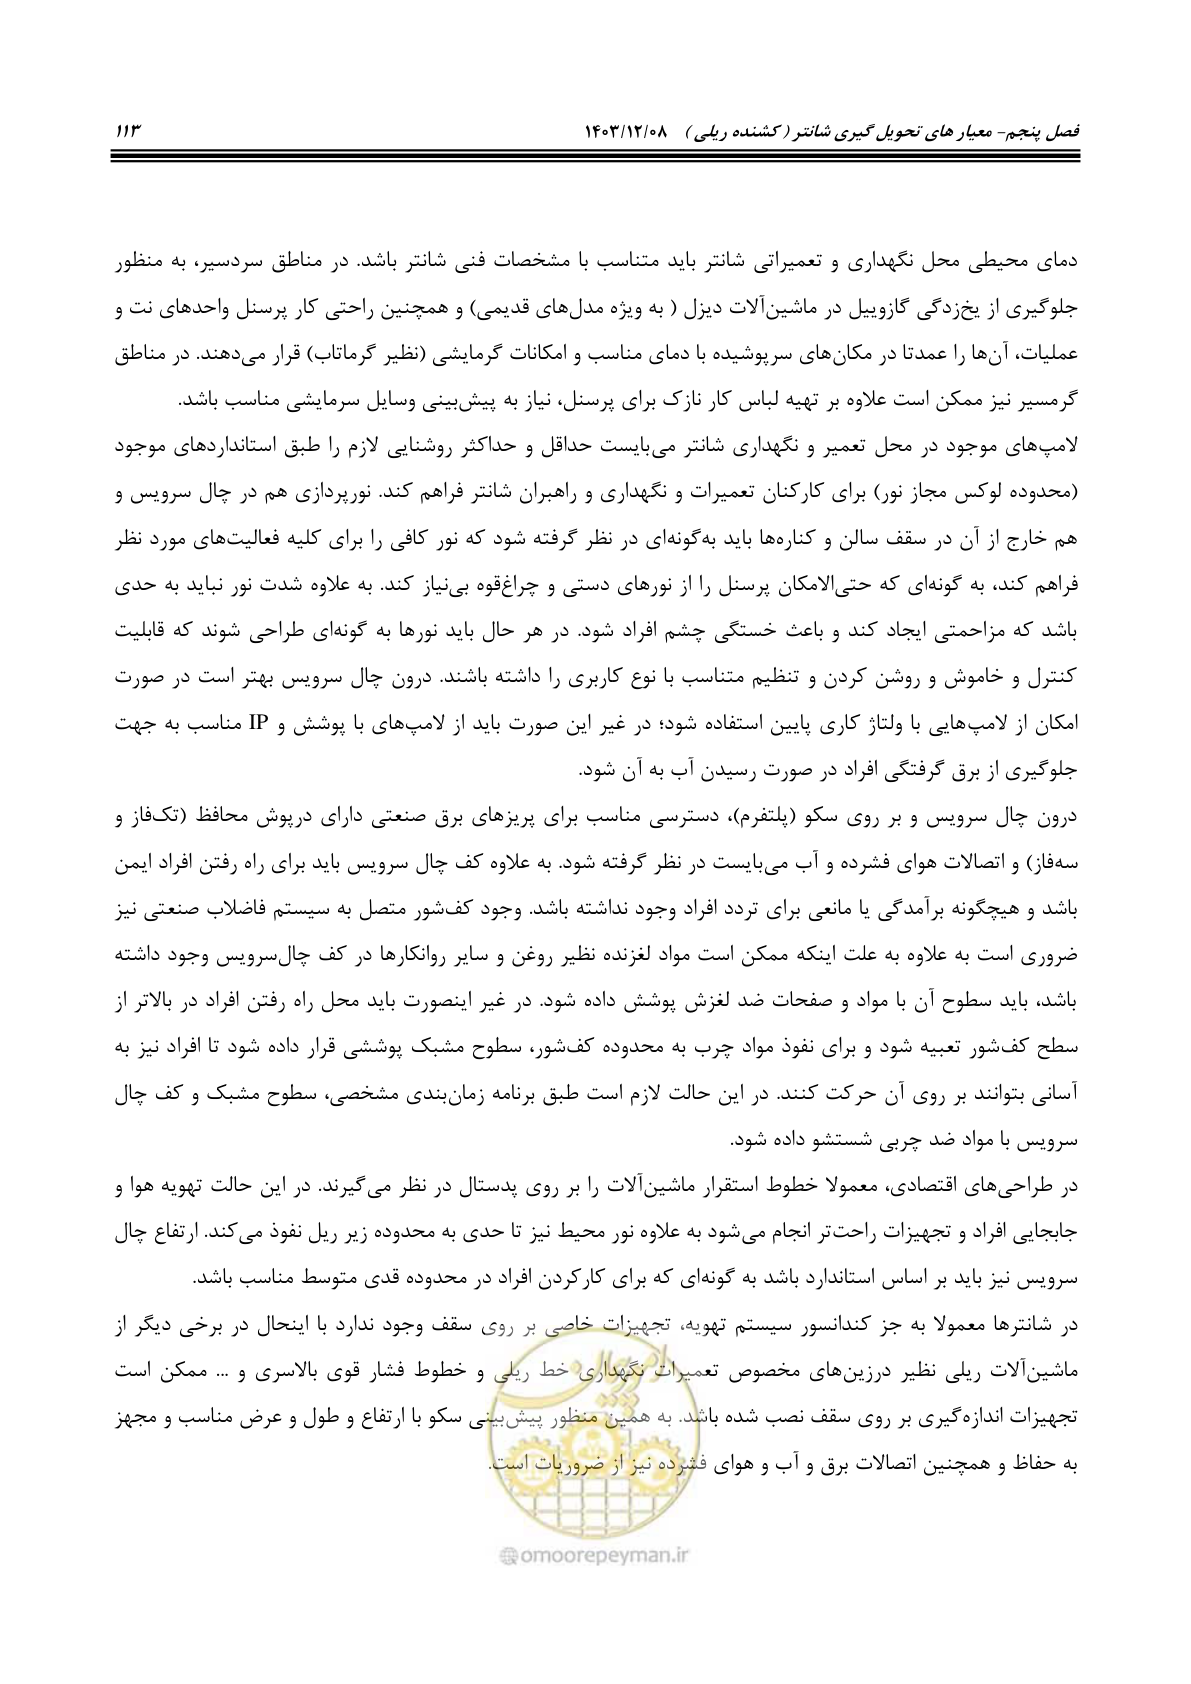 فصل پنجم- معیار های تحویل گیری شانتر ( کشنده ریلی ) ۱۴۰۳/۱۲/۰۸ ۱۱۳
دمای محیطی محل نگهداری و تعمیراتی شانتر باید متناسب با مشخصات فنی شانتر باشد. در مناطق سردسیر، به منظور
جلوگیری از یخ‌زدگی گازوییل در ماشین‌آلات دیزل ( به ویژه مدل‌های قدیمی) و همچنین راحتی کار پرسنل واحدهای نت و
عملیات، آن‌ها را عمدتا در مکان‌های سرپوشیده با دمای مناسب و امکانات گرمایشی (نظیر گرماتاب) قرار می‌دهند. در مناطق
گرمسیر نیز ممکن است علاوه بر تهیه لباس کار نازک برای پرسنل، نیاز به پیش‌بینی وسایل سرمایشی مناسب باشد.
لامپ‌های موجود در محل تعمیر و نگهداری شانتر می‌بایست حداقل و حداکثر روشنایی لازم را طبق استانداردهای موجود
(محدوده لوکس مجاز نور) برای کارکنان تعمیرات و نگهداری و راهبران شانتر فراهم کند. نورپردازی هم در چال سرویس و
هم خارج از آن در سقف سالن و کناره‌ها باید به‌گونه‌ای در نظر گرفته شود که نور کافی را برای کلیه فعالیت‌های مورد نظر
فراهم کند، به گونه‌ای که حتی‌الامکان پرسنل را از نورهای دستی و چراغ‌قوه بی‌نیاز کند. به علاوه شدت نور نباید به حدی
باشد که مزاحمتی ایجاد کند و باعث خستگی چشم افراد شود. در هر حال باید نورها به گونه‌ای طراحی شوند که قابلیت
کنترل و خاموش و روشن کردن و تنظیم متناسب با نوع کاربری را داشته باشند. درون چال سرویس بهتر است در صورت
امکان از لامپ‌هایی با ولتاژ کاری پایین استفاده شود؛ در غیر این صورت باید از لامپ‌های با پوشش و IP مناسب به جهت
جلوگیری از برق گرفتگی افراد در صورت رسیدن آب به آن شود.
درون چال سرویس و بر روی سکو (پلتفرم)، دسترسی مناسب برای پریزهای برق صنعتی دارای درپوش محافظ (تک‌فاز و
سه‌فاز) و اتصالات هوای فشرده و آب می‌بایست در نظر گرفته شود. به علاوه کف چال سرویس باید برای راه رفتن افراد ایمن
باشد و هیچگونه برآمدگی یا مانعی برای تردد افراد وجود نداشته باشد. وجود کف‌شور متصل به سیستم فاضلاب صنعتی نیز
ضروری است به علاوه به علت اینکه ممکن است مواد لغزنده نظیر روغن و سایر روانکارها در کف چال‌سرویس وجود داشته
باشد، باید سطوح آن با مواد و صفحات ضد لغزش پوشش داده شود. در غیر اینصورت باید محل راه رفتن افراد در بالاتر از
سطح کف‌شور تعبیه شود و برای نفوذ مواد چرب به محدوده کف‌شور، سطوح مشبک پوششی قرار داده شود تا افراد نیز به
آسانی بتوانند بر روی آن حرکت کنند. در این حالت لازم است طبق برنامه زمان‌بندی مشخصی، سطوح مشبک و کف چال
سرویس با مواد ضد چربی شستشو داده شود.
در طراحی‌های اقتصادی، معمولا خطوط استقرار ماشین‌آلات را بر روی پدستال در نظر می‌گیرند. در این حالت تهویه هوا و
جابجایی افراد و تجهیزات راحت‌تر انجام می‌شود به علاوه نور محیط نیز تا حدی به محدوده زیر ریل نفوذ می‌کند. ارتفاع چال
سرویس نیز باید بر اساس استاندارد باشد به گونه‌ای که برای کارکردن افراد در محدوده قدی متوسط مناسب باشد.
در شانترها معمولا به جز کندانسور سیستم تهویه، تجهیزات خاصی بر روی سقف وجود ندارد با اینحال در برخی دیگر از
ماشین‌آلات ریلی نظیر درزین‌های مخصوص تعمیرات نگهداری خط ریلی و خطوط فشار قوی بالاسری و ... ممکن است
تجهیزات اندازه‌گیری بر روی سقف نصب شده باشد. به همین منظور پیش‌بینی سکو با ارتفاع و طول و عرض مناسب و مجهز
به حفاظ و همچنین اتصالات برق و آب و هوای فشرده نیز از ضروریات است.
امور پیمان
@omoorepeyman.ir